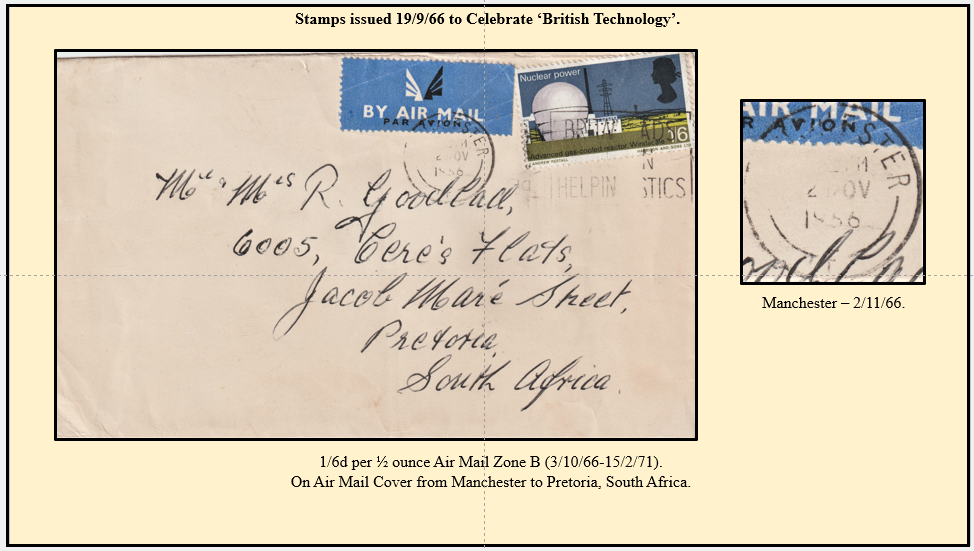 Stamps issued 19/9/66 to Celebrate ‘British Technology’.
BY AIR MAIL
PAR AVION
Nuclear power
1/6
Advanced gas-cooled reactor, Windscale
HELPIN STICS
STER
2 NOV
Mr & Mrs R. Goodlad,
6005, Cere's Flats,
Jacob Maré Street,
Pretoria,
South Africa.
AIR MAIL
R AVION
STER
2 NOV
Manchester – 2/11/66.
1/6d per ½ ounce Air Mail Zone B (3/10/66-15/2/71).
On Air Mail Cover from Manchester to Pretoria, South Africa.